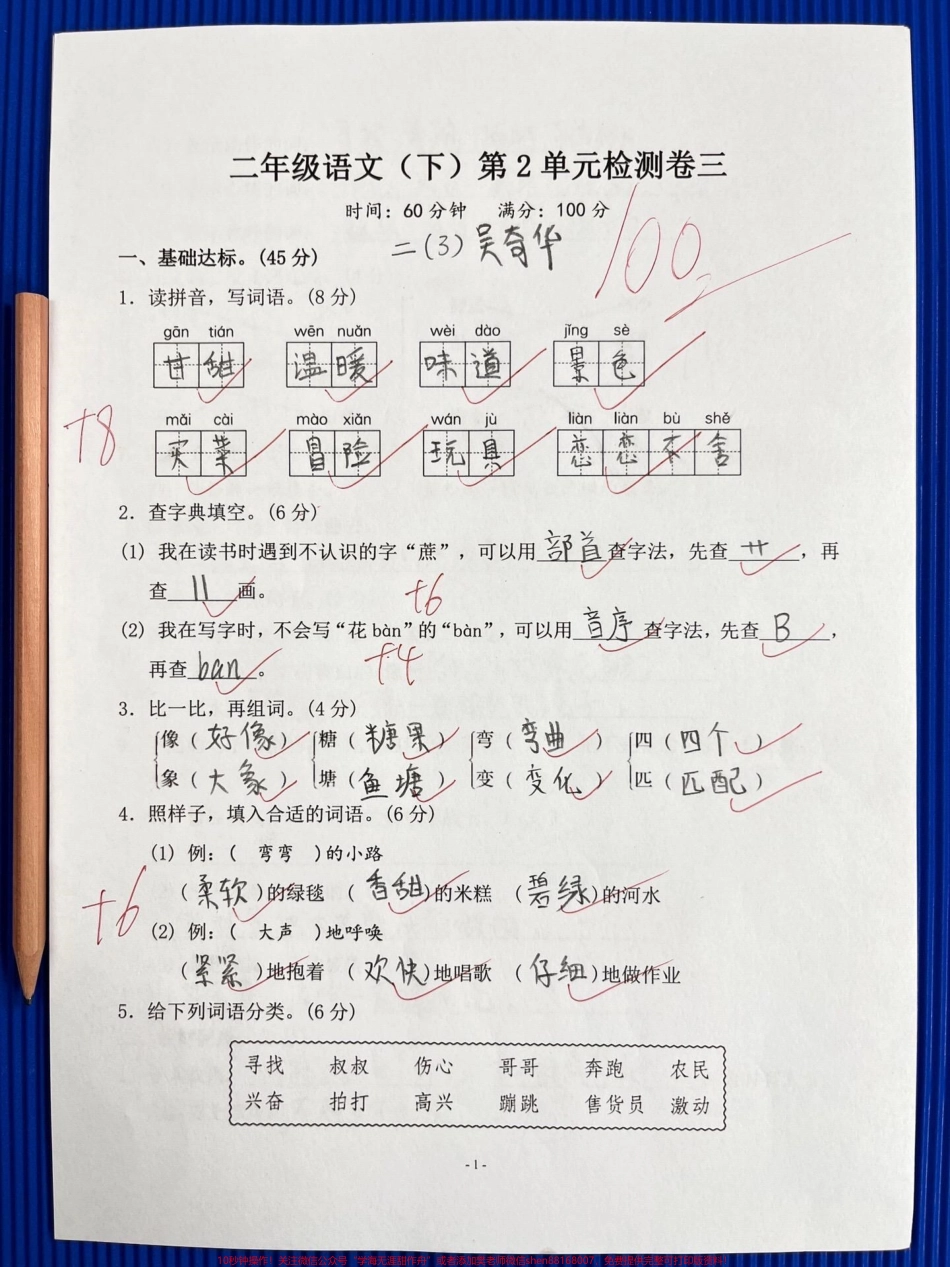 二年级语文（下）第2单元检测卷三
时间：60分钟 满分：100分
二(3) 吴奇华
100
一、基础达标。(45分)
1. 读拼音，写词语。(8分)
gān tián wēn nuǎn wèi dào jǐng sè
甘甜 温暖 味道 景色
mǎi cài mào xiǎn wán jù liàn liàn bù shě
买菜 冒险 玩具 恋恋不舍
+8
2. 查字典填空。(6分)
(1) 我在读书时遇到不认识的字“蔗”，可以用 部首 查字法，先查 艹 ，再
查 11 画。
+6
(2) 我在写字时，不会写“花bàn”的“bàn”，可以用 音序 查字法，先查 B ，
再查 ban 。
+4
3. 比一比，再组词。(4分)
像（好像） 糖（糖果） 弯（弯曲） 四（四个）
象（大象） 塘（鱼塘） 变（变化） 匹（匹配）
4. 照样子，填入合适的词语。(6分)
(1) 例：( 弯弯 )的小路
(柔软)的绿毯 (香甜)的米糕 (碧绿)的河水
+6
(2) 例：( 大声 )地呼唤
(紧紧)地抱着 (欢快)地唱歌 (仔细)地做作业
5. 给下列词语分类。(6分)
寻找 叔叔 伤心 哥哥 奔跑 农民
兴奋 拍打 高兴 蹦跳 售货员 激动
- 1 -
10秒钟操作！关注微信公众号“学海无涯甜作舟”或者添加昊老师微信shen88168007，免费提供完整可打印版资料